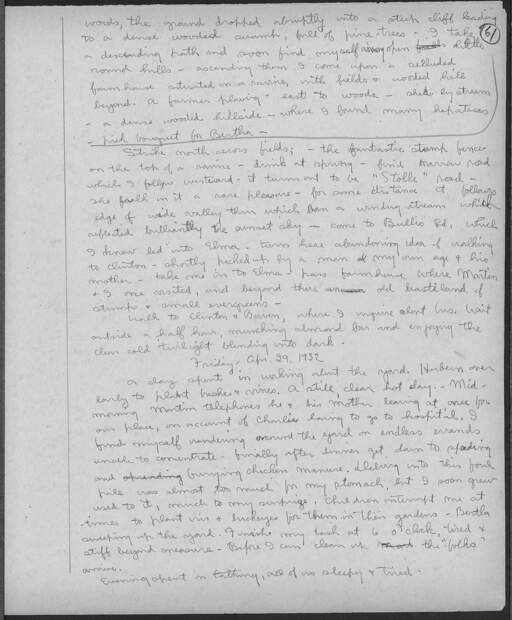 woods, the ground dropped abruptly into a steep cliff leading
to a dense wooded swamp, full of pine trees - I take
61
a descending path and soon find myself among open little
round hills - ascending them I come upon a secluded
farm house situated on a ravine, with fields & wooded hill
beyond. A farmer plowing - east to woods - by stream
- a dense wooded hillside - where I found many hepaticas
- pick bouquet for Bertha -
Strike north across fields; - the fantastic stump fence
on the top of a ravine - drink at spring - find narrow road
which I follow westward - it turns out to be "Stolle" road -
walk in it a rare pleasure - for some distance it follows
edge of wide valley thru which ran a winding stream which
reflected brilliantly the sunset sky - come to Bullis Rd. which
I knew led into Elma - turn here abandoning idea of walking
to Clinton - shortly picked up by a man of my own age & his
mother - take me in to Elma - pass farmhouse where Martin
& I once visited, and beyond there old battleland of
stumps & small evergreens -
Walk to Clinton & Bowen, where I inquire about bus. Wait
outside a half hour, munching almond bar and enjoying the
clear cold twilight blending into dark.
Friday - Apr. 29, 1932
A day spent in working about the yard. over
early to plant bushes & vines. A still clear hot day. - Mid-
morning Martin telephones he & his mother leaving at once for
our place, on account of Charlie having to go to hospital. I
find myself wandering around the yard on endless errands
unable to concentrate - finally after dinner get down to spading
and burying chicken manure. Delving into this foul
pile was almost too much for my stomach, but I soon grew
used to it, much to my surprise. Children interrupt me at
times to plant & buckeyes for them in their gardens - Bertha
sweeping up the yard. I finish my task at 6 o'clock tired &
stiff beyond measure - Before I can clean up the "folks"
arrive.
Evening spent in talking, all of us sleepy & tired.